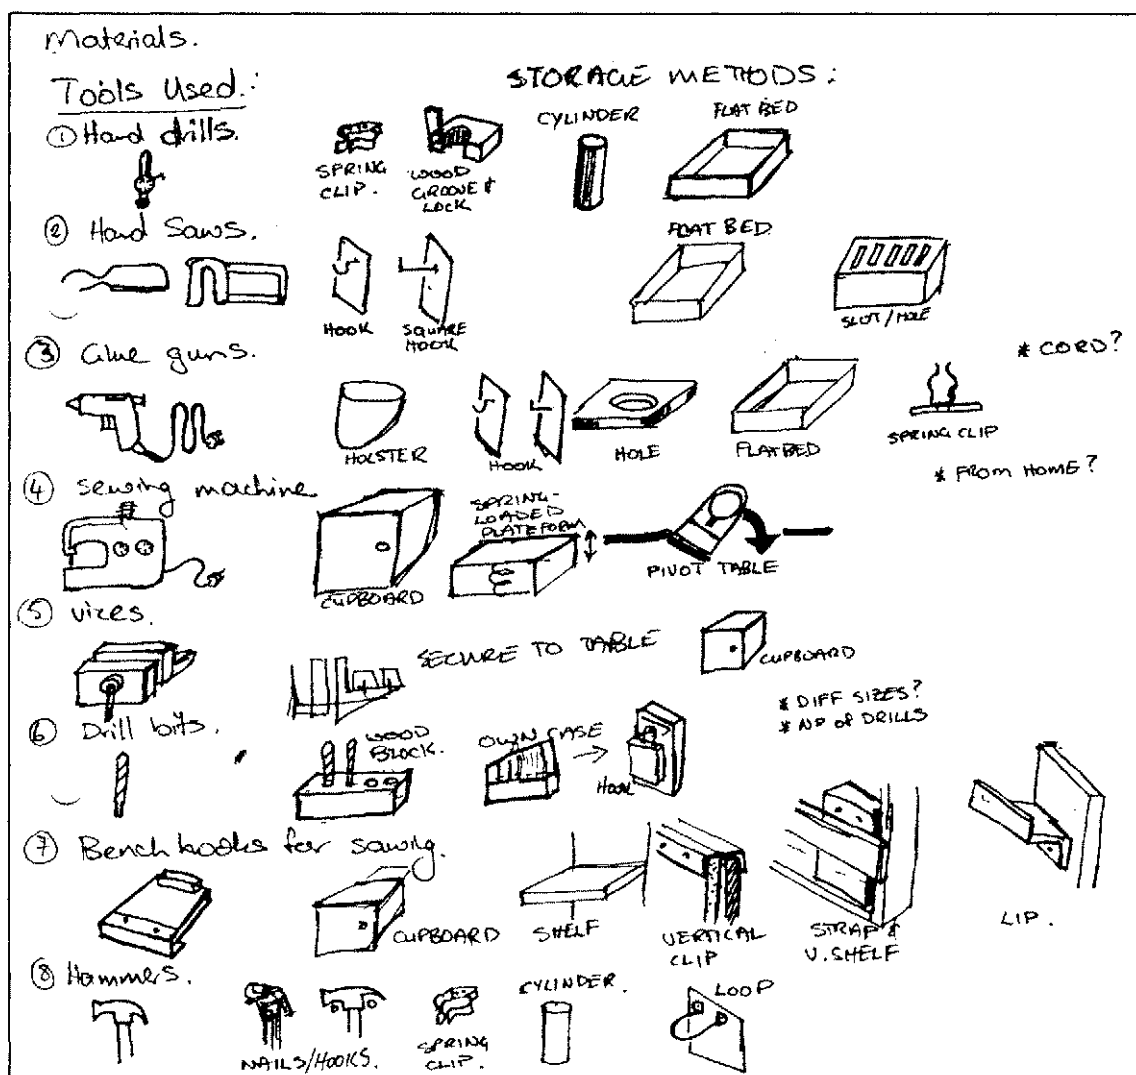 Materials.
Tools Used:
STORAGE METHODS:
① Hand drills.
SPRING CLIP.
WOOD GROOVE & LOCK
CYLINDER
FLAT BED
② Hand Saws.
HOOK
SQUARE HOOK
FLAT BED
SLOT/HOLE
③ Glue guns.
* CORD?
HOLSTER
HOOK
HOLE
FLATBED
SPRING CLIP
* FROM HOME?
④ Sewing machine
CUPBOARD
SPRING-LOADED PLATEFORM
PIVOT TABLE
⑤ vices.
SECURE TO TABLE
CUPBOARD
* DIFF SIZES?
* Nº of DRILLS
⑥ Drill bits.
WOOD BLOCK.
OWN CASE
HOOK
⑦ Bench hooks for sawing.
CUPBOARD
SHELF
VERTICAL CLIP
STRAP & V. SHELF
LIP.
⑧ Hammers.
NAILS/HOOKS.
SPRING CLIP.
CYLINDER.
LOOP